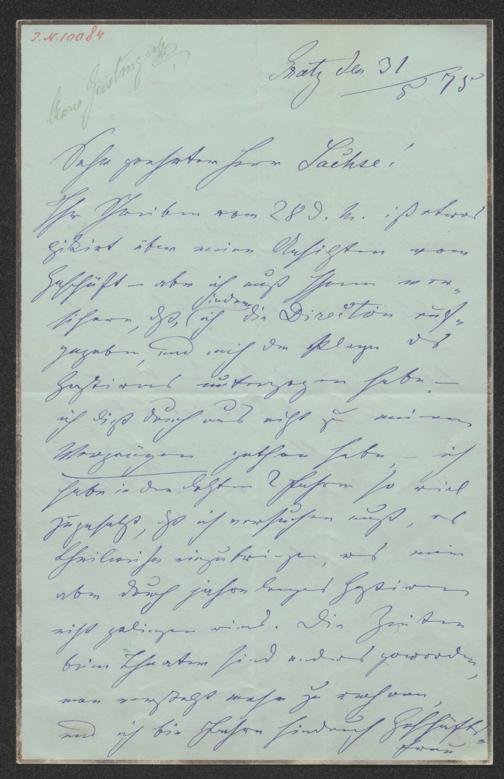 J.N. 10084
Marie Geistinger
Gratz den 31/5 75
Sehr geehrter Herr Sachse!
Ihr Schreiben vom 28 d. M. ist etwas
pikirt über meine Ansichten vom
Geschäft – aber ich muß Ihnen ver-
sichern, daß, indem ich die Direction auf-
gegeben, und mich der Plage des
Gastirens unterzogen habe –
ich dieß durch aus nicht zu meinem
Vergnügen gethan habe, – ich
habe in den letzten 2 Jahren so viel
zugesetzt, daß ich versuchen muß, es
theilweise einzubringen, was mir
aber durch jahrelanges Gastiren
nicht gelingen wird. Die Zeiten
beim Theater sind anders geworden,
man versteht mehr zu rechnen,
und ich bin Jahre hindurch Geschäfts-
frau